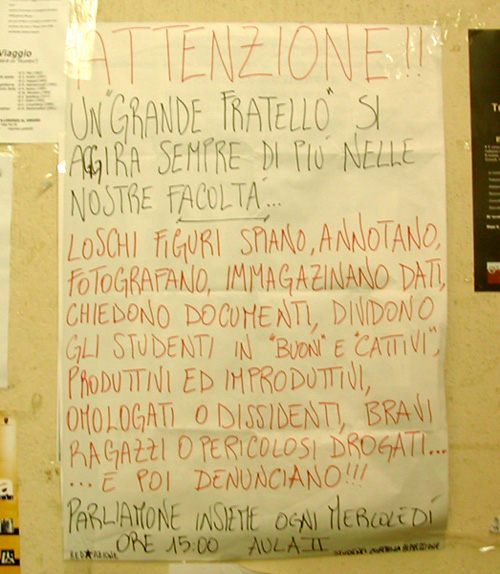 ATTENZIONE!!
UN "GRANDE FRATELLO" SI
AGGIRA SEMPRE DI PIÙ NELLE
NOSTRE FACOLTÀ...
LOSCHI FIGURI SPIANO, ANNOTANO,
FOTOGRAFANO, IMMAGAZINANO DATI,
CHIEDONO DOCUMENTI, DIVIDONO
GLI STUDENTI IN "BUONI" E "CATTIVI",
PRODUTTIVI ED IMPRODUTTIVI,
OMOLOGATI O DISSIDENTI, BRAVI
RAGAZZI O PERICOLOSI DROGATI...
... E POI DENUNCIANO!!!
PARLIAMONE INSIEME OGNI MERCOLEDÍ
ORE 15:00 AULA II
Viaggio